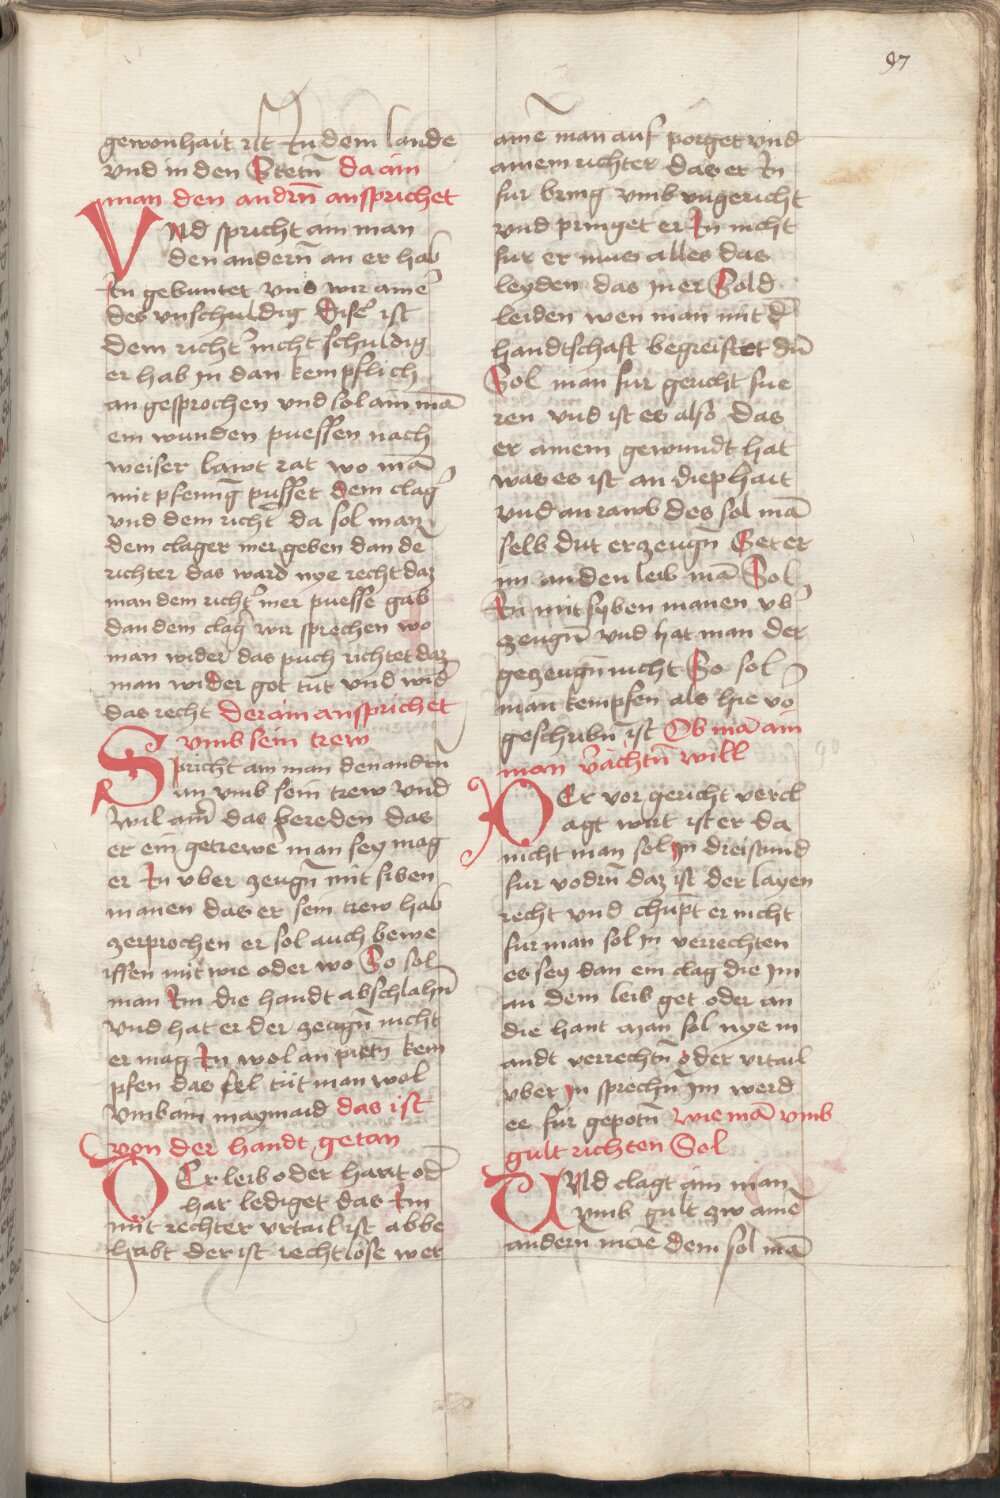 97
gewonhait ist In dem lande
vnd in den Stetn̄ da ain
man den andrn̄ ansprichet
VNd spricht ain man
den andern̄ an er hab
In gebuntet vnd wir ame᷑
des vnschuldig Dise᷑ ist
dem richt᷑ nicht schuldig
er hab in dan kempflich
angesprochen vnd sol ain mā
ein wunden puessen nach
weiser lawt rat wo mā
mit pfennīg pusset dem clag᷑
vnd dem richt᷑ da sol man
dem clager mer geben dan de᷑
richter das ward nye recht daz
man dem richt᷑ mer puesse gab
dan dem clag᷑ wir sprechen wo
man wider das puch richtet daz
man wider got tut vnd wid᷑
das recht der ain ansprichet
vmb sein trew
Spricht ain man den andern̄
an vmb sein trew vnd
wil am̄ das bereden das
er ein getrewe man sey mag
er In vber zeugn̄ mit siben
manen das er sein trew hab
zerprochen er sol auch bewe
issen mit wie oder wo So sol
man Im die handt abschlahn̄
vnd hat er der zeugn̄ nicht
er mag In wol an pietn̄ kem
pfen das sel tut man wol
vmb ain maymaid das ist
von der handt getan
DEr leib oder hawt od᷑
har lediget das Im
mit rechter vrtail ist abbe
habt der ist rechtlose wer
ame man auf porget vnd
ainem richter das er In
fur bring vmb vngericht
vnd pringet er In nicht
fur er mus alles das
leyden das iner Sold
leiden wen man mit d᷑
handtschaft begreiffet dn̄
Sol man fur gericht fue
ren vnd ist es also das
er ainem gewundt hat
was es ist an diephait
vnd an rawb des sol mā
selb drit erzeugn̄ Get er
im an den leib mā Sol
In mit syben manen vb᷑
zeugn̄ vnd hat man der
gezeugn̄ nicht So sol
man kempfen als hie vo
geschribn̄ ist Ob mā ain
man vachtn̄ will
DEr vor gericht vercl
agt wirt ist er da
nicht man sol in dreistund
fur vodrn̄ daz ist der layen
recht vnd chupt er nicht
fur man sol in verrechten
es sey dan ein clag die im
an dem leib get oder an
die hant man sol nyem
andt verrechtn̄ oder vrtail
vber in sprechn̄ im werd
ee fur gepotn̄ wie mā vmb
gult richten Sol
VNd clagt ain man
vmb gult zw ame᷑
andern̄ mane dem sol mā